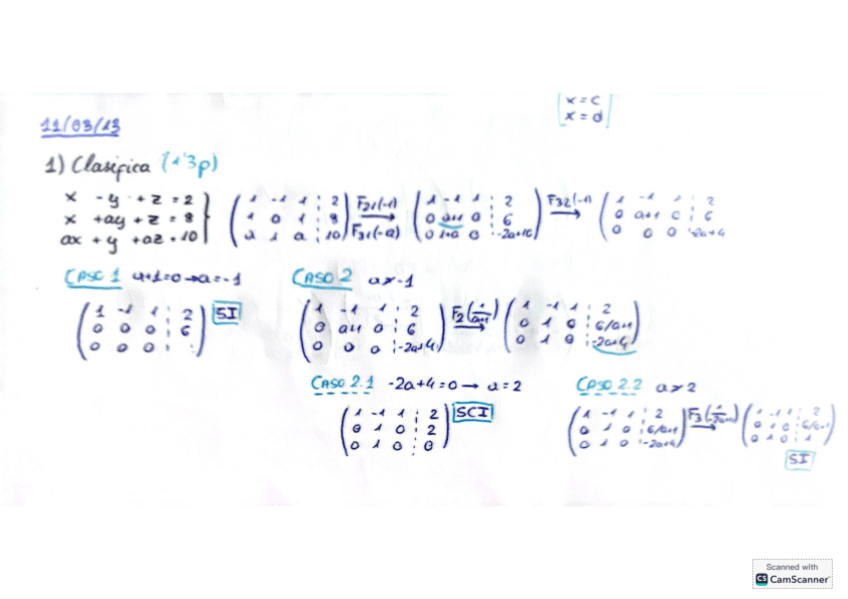 x = c
x = d
11/03/13
1) Clasifica (1'3p)
x - y + z = 2
x + ay + z = 8
ax + y + az = 10
1 -1 1 2
1 a 1 8
a 1 a 10
F21(-1)
F31(-a)
1 -1 1 2
0 a+1 0 6
0 1+a 0 -2a+10
F32(-1)
1 -1 1 2
0 a+1 0 6
0 0 0 -2a+4
CASO 1 a+1=0 → a=-1
1 -1 1 2
0 0 0 6
0 0 0
SI
CASO 2 a≠-1
1 -1 1 2
0 a+1 0 6
0 0 0 -2a+4
F2(1/a+1)
1 -1 1 2
0 1 0 6/a+1
0 1 0 -2a+4
CASO 2.1 -2a+4=0 → a=2
1 -1 1 2
0 1 0 2
0 1 0 0
SCI
CASO 2.2 a≠2
1 -1 1 2
0 1 0 6/a+1
0 1 0 -2a+4
1 -1 1 2
0 1 0 6/a+1
0 1 0 1
SI
Scanned with
CS CamScanner